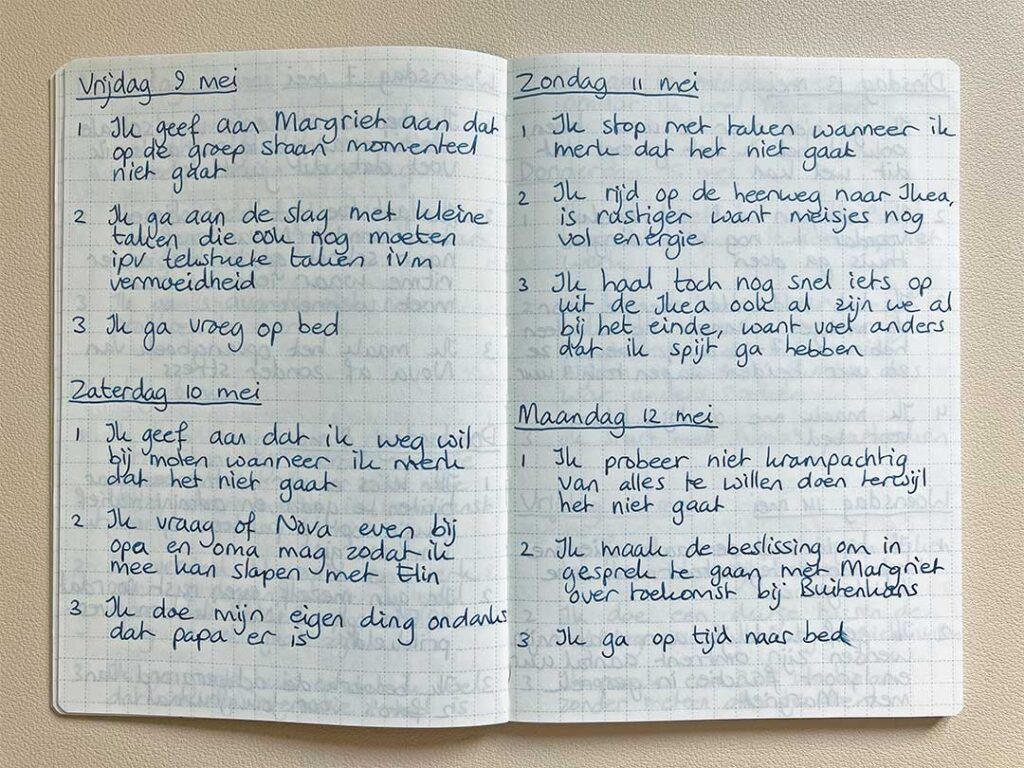 Vrijdag 9 mei
1 Ik geef aan Margriet aan dat
op de groep staan momenteel
niet gaat
2 Ik ga aan de slag met kleine
taken die ook nog moeten
ipv tekstuele taken ivm
vermoeidheid
3 Ik ga vroeg op bed
Zaterdag 10 mei
1 Ik geef aan dat ik weg wil
bij molen wanneer ik merk
dat het niet gaat
2 Ik vraag of Nova even bij
opa en oma mag zodat ik
mee kan slapen met Elin
3 Ik doe mijn eigen ding ondanks
dat papa er is
Zondag 11 mei
1 Ik stop met taken wanneer ik
merk dat het niet gaat
2 Ik rijd op de heenweg naar Ikea,
is rustiger want meisjes nog
vol energie
3 Ik haal toch nog snel iets op
uit de Ikea ook al zijn we al
bij het einde, want voel anders
dat ik spijt ga hebben
Maandag 12 mei
1 Ik probeer niet krampachtig
van alles te willen doen terwijl
het niet gaat
2 Ik maak de beslissing om in
gesprek te gaan met Margriet
over toekomst bij
3 Ik ga op tijd naar bed